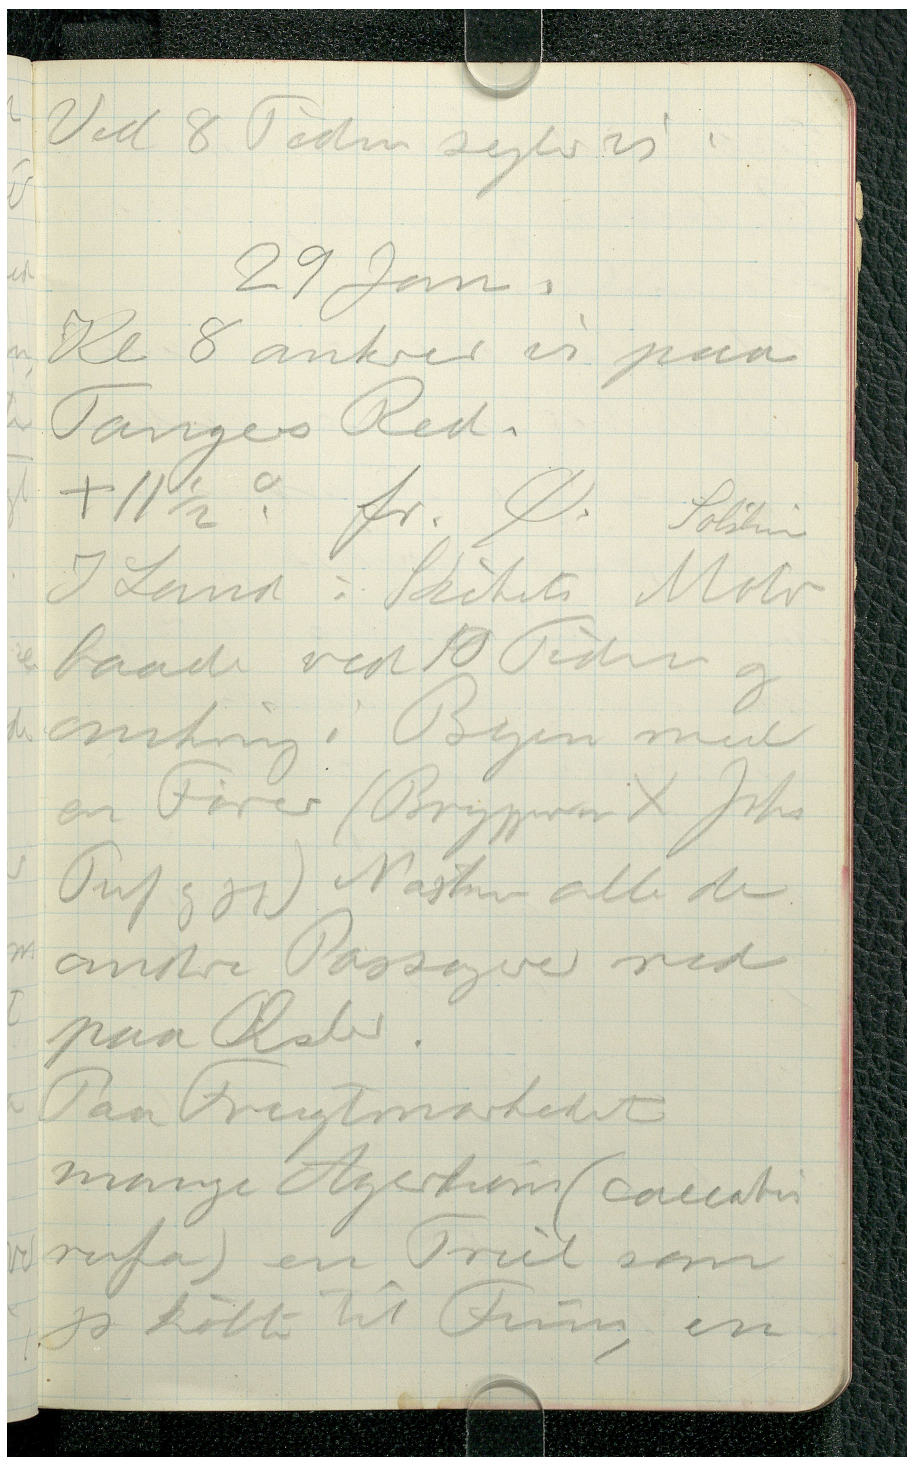 Ved 8 Tiden sejler vi.
29 Jan.
Kl 8 ankrer vi paa
Tangers Red.
+11½°. fr. Ø. Solskin
I Land i Skibets Motor
baade ved 10 Tiden og
omkring i Byen med
en Fører ( X Johs
og jeg) Næsten alle de
andre Passagerer red
paa Æsler.
Paa Frugtmarkedet
mange Agerhøns (caccabis
rufa) en Triel som
jeg købte til en